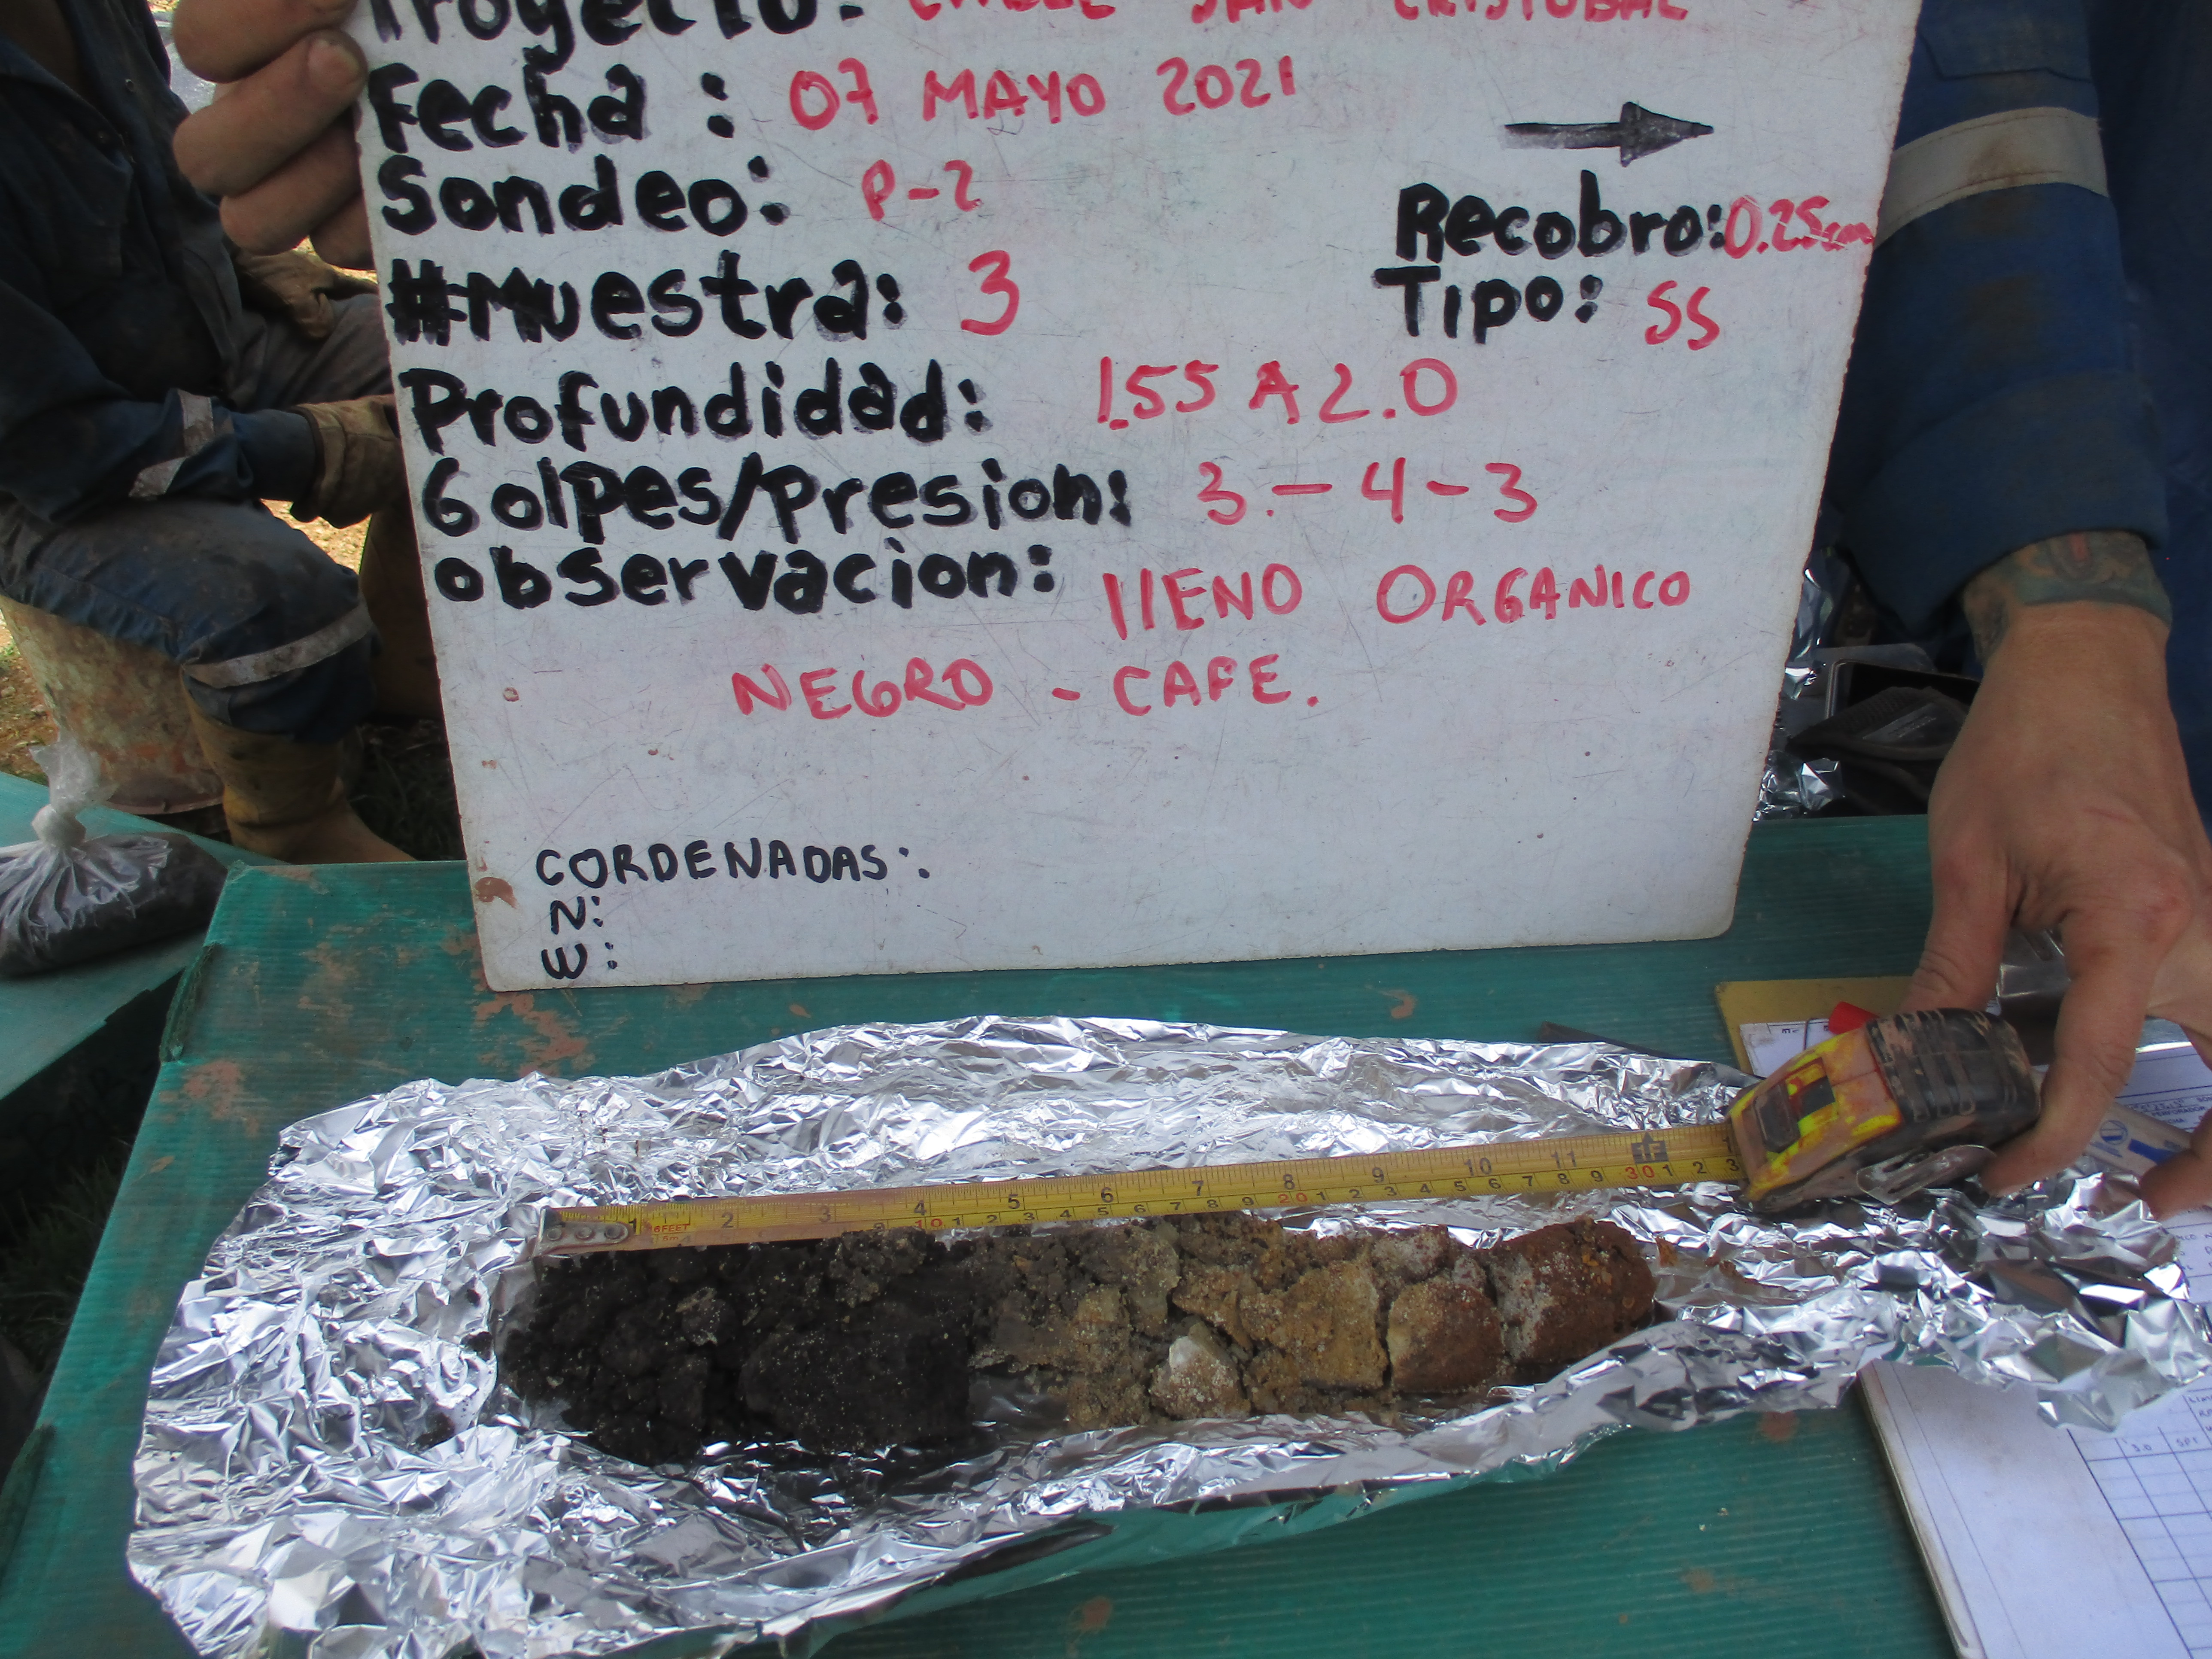 Proyecto: CABLE SAN CRISTOBAL
Fecha : 07 MAYO 2021
Sondeo: P-2
Recobro: 0.25cm
#Muestra: 3
Tipo: SS
Profundidad: 1.55 A 2.0
Golpes/Presion: 3.-4-3
observacion: llENO ORGANICO
NEGRO - CAFE.
CORDENADAS:.
N:
E:
1 2 3 4 5 6 7 8 9 10 11
6FEET
8 9 10 1 2 3 4 5 6 7 8 9 20 1 2 3 4 5 6 7 8 9 30 1 2 3